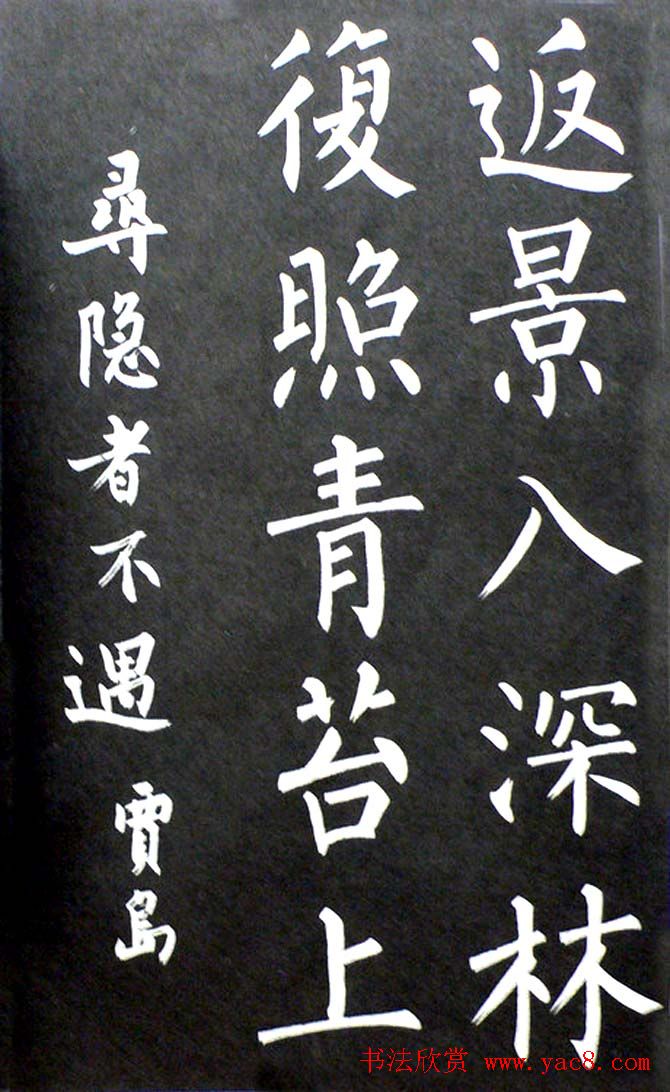 返景入深林
復照青苔上
尋隐者不遇 賈島
书法欣赏 www.yac8.com